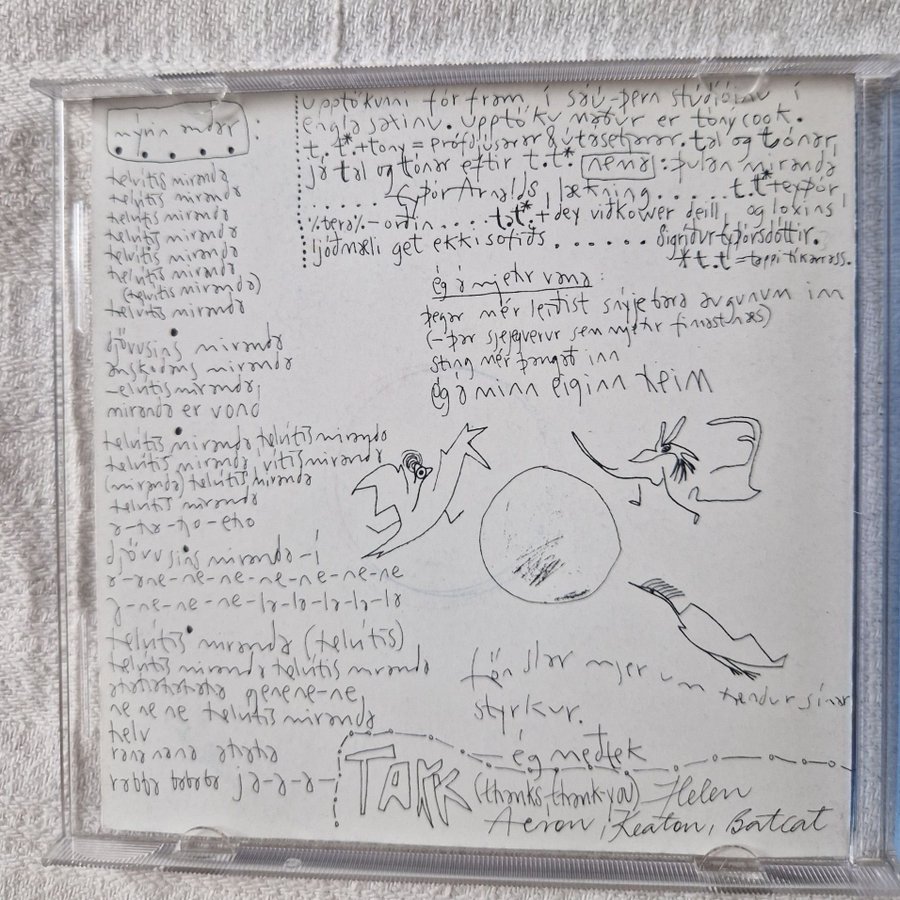 mýrin andar :
helvítis miranda
helvítis miranda
helvítis miranda
helvítis miranda
helvítis miranda
helvítis miranda
(helvítis miranda)
helvítis miranda
djövusins miranda
anskodans miranda
-elvítis miranda,
miranda er vond
helvítis miranda helvítis miranda
helvítis miranda, vítis miranda
(miranda) helvítis miranda
helvítis miranda
a-ha-ho-eho
djövusins miranda-í
a-ane-ne-ne-ne-ne-ne-ne
a-ne-ne-ne-la-la-la-la-la
helvítis miranda (helvítis)
helvítis miranda helvítis miranda
ahahahahaha genene-ne,
ne ne ne helvítis miranda
helv
rana nana ahaha
rabba bababa ja-a-a-
upptökuni fór fram í saú-þern stúdíóinu í
englasaxinu. upptöku maður er tóny cook.
t.t*.+tony = prófdjúsarar & útásetjarar. tal og tónar,
já tal og tónar eftir t.t.* nema : þulan miranda
...... eyþór Arnalds, lækning...... t.t*+eyþór,
%tera%-orðin.... t.t*.+ dey viðkower deill, og loxins
ljóðmæli get ekki sofiðs ...... sigríður eyþórsdóttir.
*t.t=tappi tíkarrass.
ég á mjetir vana :
þegar mér leiðist sný je bara augunum inn
(-þar sje je verur sem mjetir finast næs)
sting mér þangað inn
ég á minn eiginn heim
fön slær mjer um hendur sínar
styrkur.
ég meðtek
TAKK (thanks, thank-you) Helen
Aeron, Keaton, Batcat